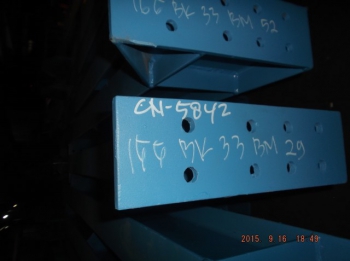 166 BK 33 BM 52
CN-5842
166 BK 33 BM 29
2015 9 16 18:49